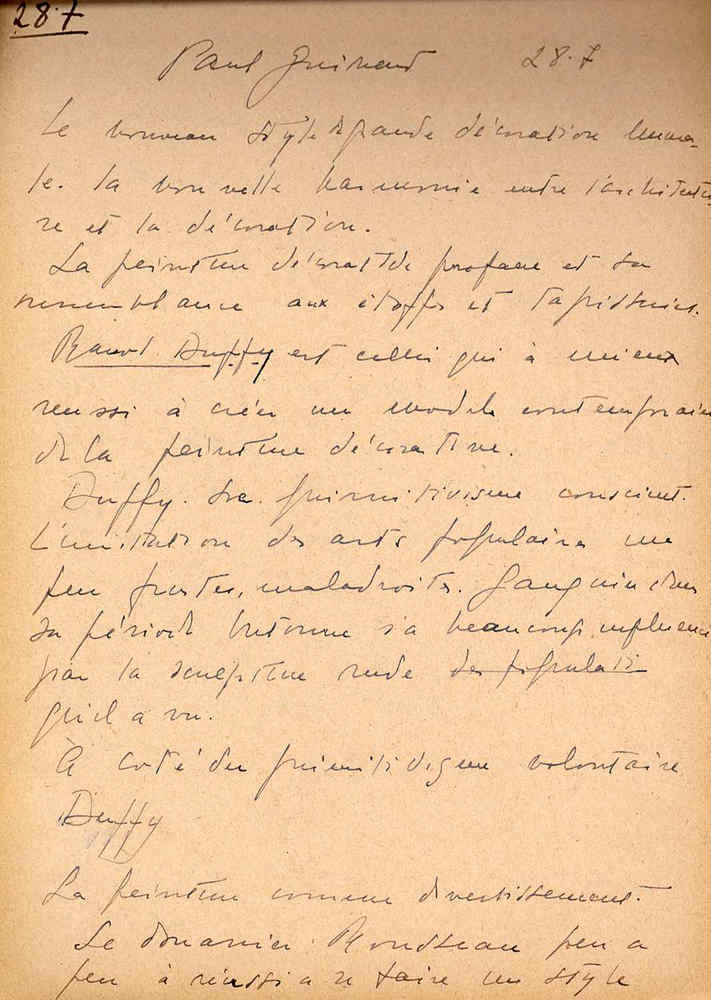 28.7
Paul Guinard 28.7
Le nouveau style de grande décoration mura-
le. La nouvelle harmonie entre l'architectu-
re et la décoration.
La peinture décorative profane et sa
ressemblance aux étoffes et tapisseries.
Raoul Duffy est cellui qui à mieux
reussi à créer un modele contemporain
de la peinture décorative.
Duffy. primitivisme conscient.
L'imitation des arts populaires un
peu frustes, maladroits. Gauguin dans
sa période bretonne s'a beaucoup influencé
par la sculpture rude des populati
qu'il a vu.
A coté du primitivisme volontaire
Duffy
La peinture comme divertissement.
Le douanier Rousseau peu a
peu à réussi a se faire un style